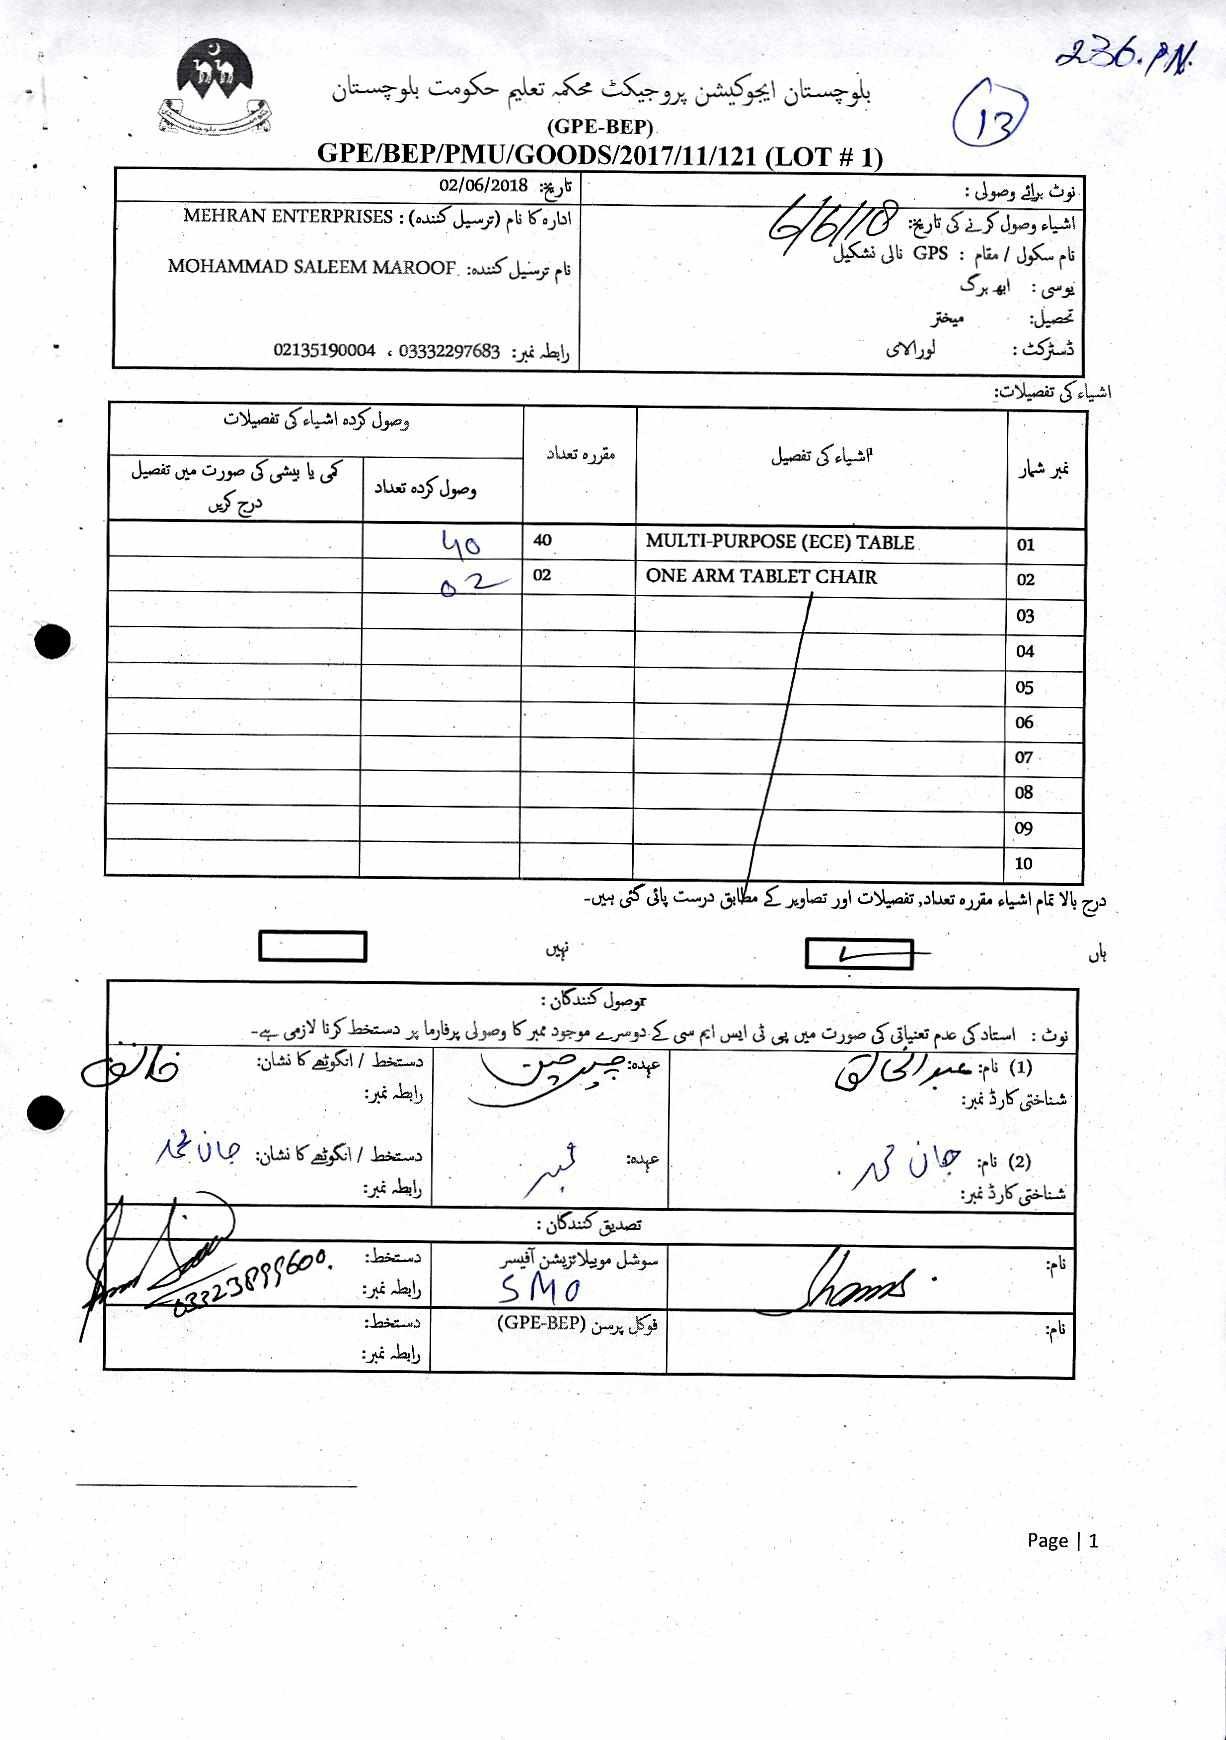 236.P.N.
13
بلوچستان ایجوکیشن پروجیکٹ محکمہ تعلیم حکومت بلوچستان
(GPE-BEP)
GPE/BEP/PMU/GOODS/2017/11/121 (LOT # 1)
نوٹ برائے وصولی :
تاریخ: 02/06/2018
اشیاء وصول کرنے کی تاریخ: 6/6/18
ادارہ کا نام (ترسیل کنندہ) : MEHRAN ENTERPRISES
نام سکول / مقام : GPS نالی نشکیل
نام ترسیل کنندہ: MOHAMMAD SALEEM MAROOF
یوسی : ابھ برگ
تحصیل: میختر
ڈسٹرکٹ : لورالای
رابطہ نمبر: 03332297683 ، 02135190004
اشیاء کی تفصیلات:
نمبر شمار
اشیاء کی تفصیل
مقررہ تعداد
وصول کردہ اشیاء کی تفصیلات
وصول کردہ تعداد
کمی یا بیشی کی صورت میں تفصیل درج کریں
01 MULTI-PURPOSE (ECE) TABLE 40 40
02 ONE ARM TABLET CHAIR 02 02
03
04
05
06
07
08
09
10
درج بالا تمام اشیاء مقررہ تعداد, تفصیلات اور تصاویر کے مطابق درست پائی گئی ہیں۔
ہاں
نہیں
وصول کنندگان :
نوٹ : استاد کی عدم تعنیاتی کی صورت میں پی ٹی ایس ایم سی کے دوسرے موجود ممبر کا وصولی پرفارما پر دستخط کرنا لازمی ہے۔
(1) نام: عبدالخالق
عہدہ: چیرمین
دستخط / انگوٹھے کا نشان: خالق
شناختی کارڈ نمبر:
رابطہ نمبر:
(2) نام: جان محمد
عہدہ: ممبر
دستخط / انگوٹھے کا نشان: جان محمد
شناختی کارڈ نمبر:
رابطہ نمبر:
تصدیق کنندگان :
نام: Shams
سوشل موبیلائزیشن آفیسر
SMO
دستخط:
رابطہ نمبر: 03323899600
نام:
فوکل پرسن (GPE-BEP)
دستخط:
رابطہ نمبر:
Page | 1